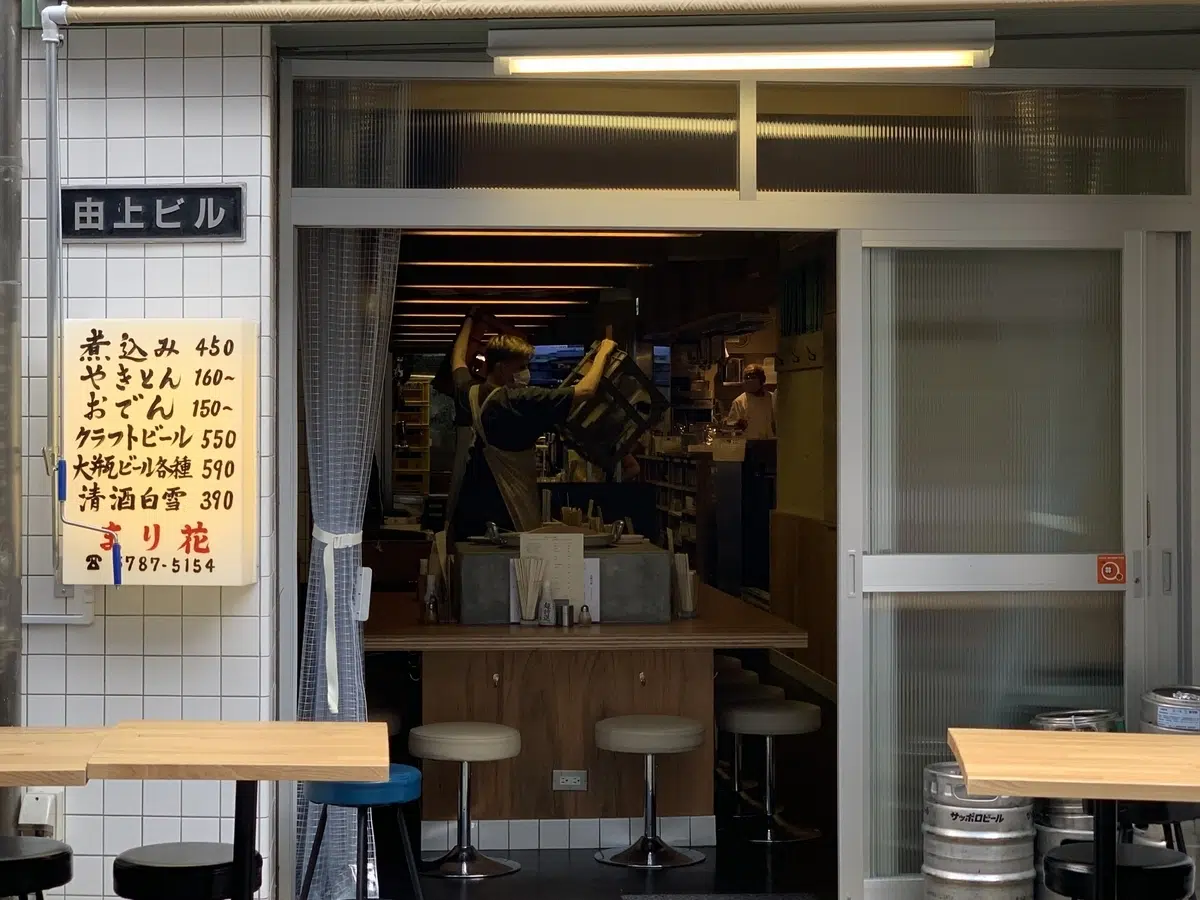 由上ビル
煮込み 450
やきとん 160~
おでん 150~
クラフトビール 550
大瓶ビール各種 590
清酒白雪 390
まり花
☎ 787-5154
サッポロビール